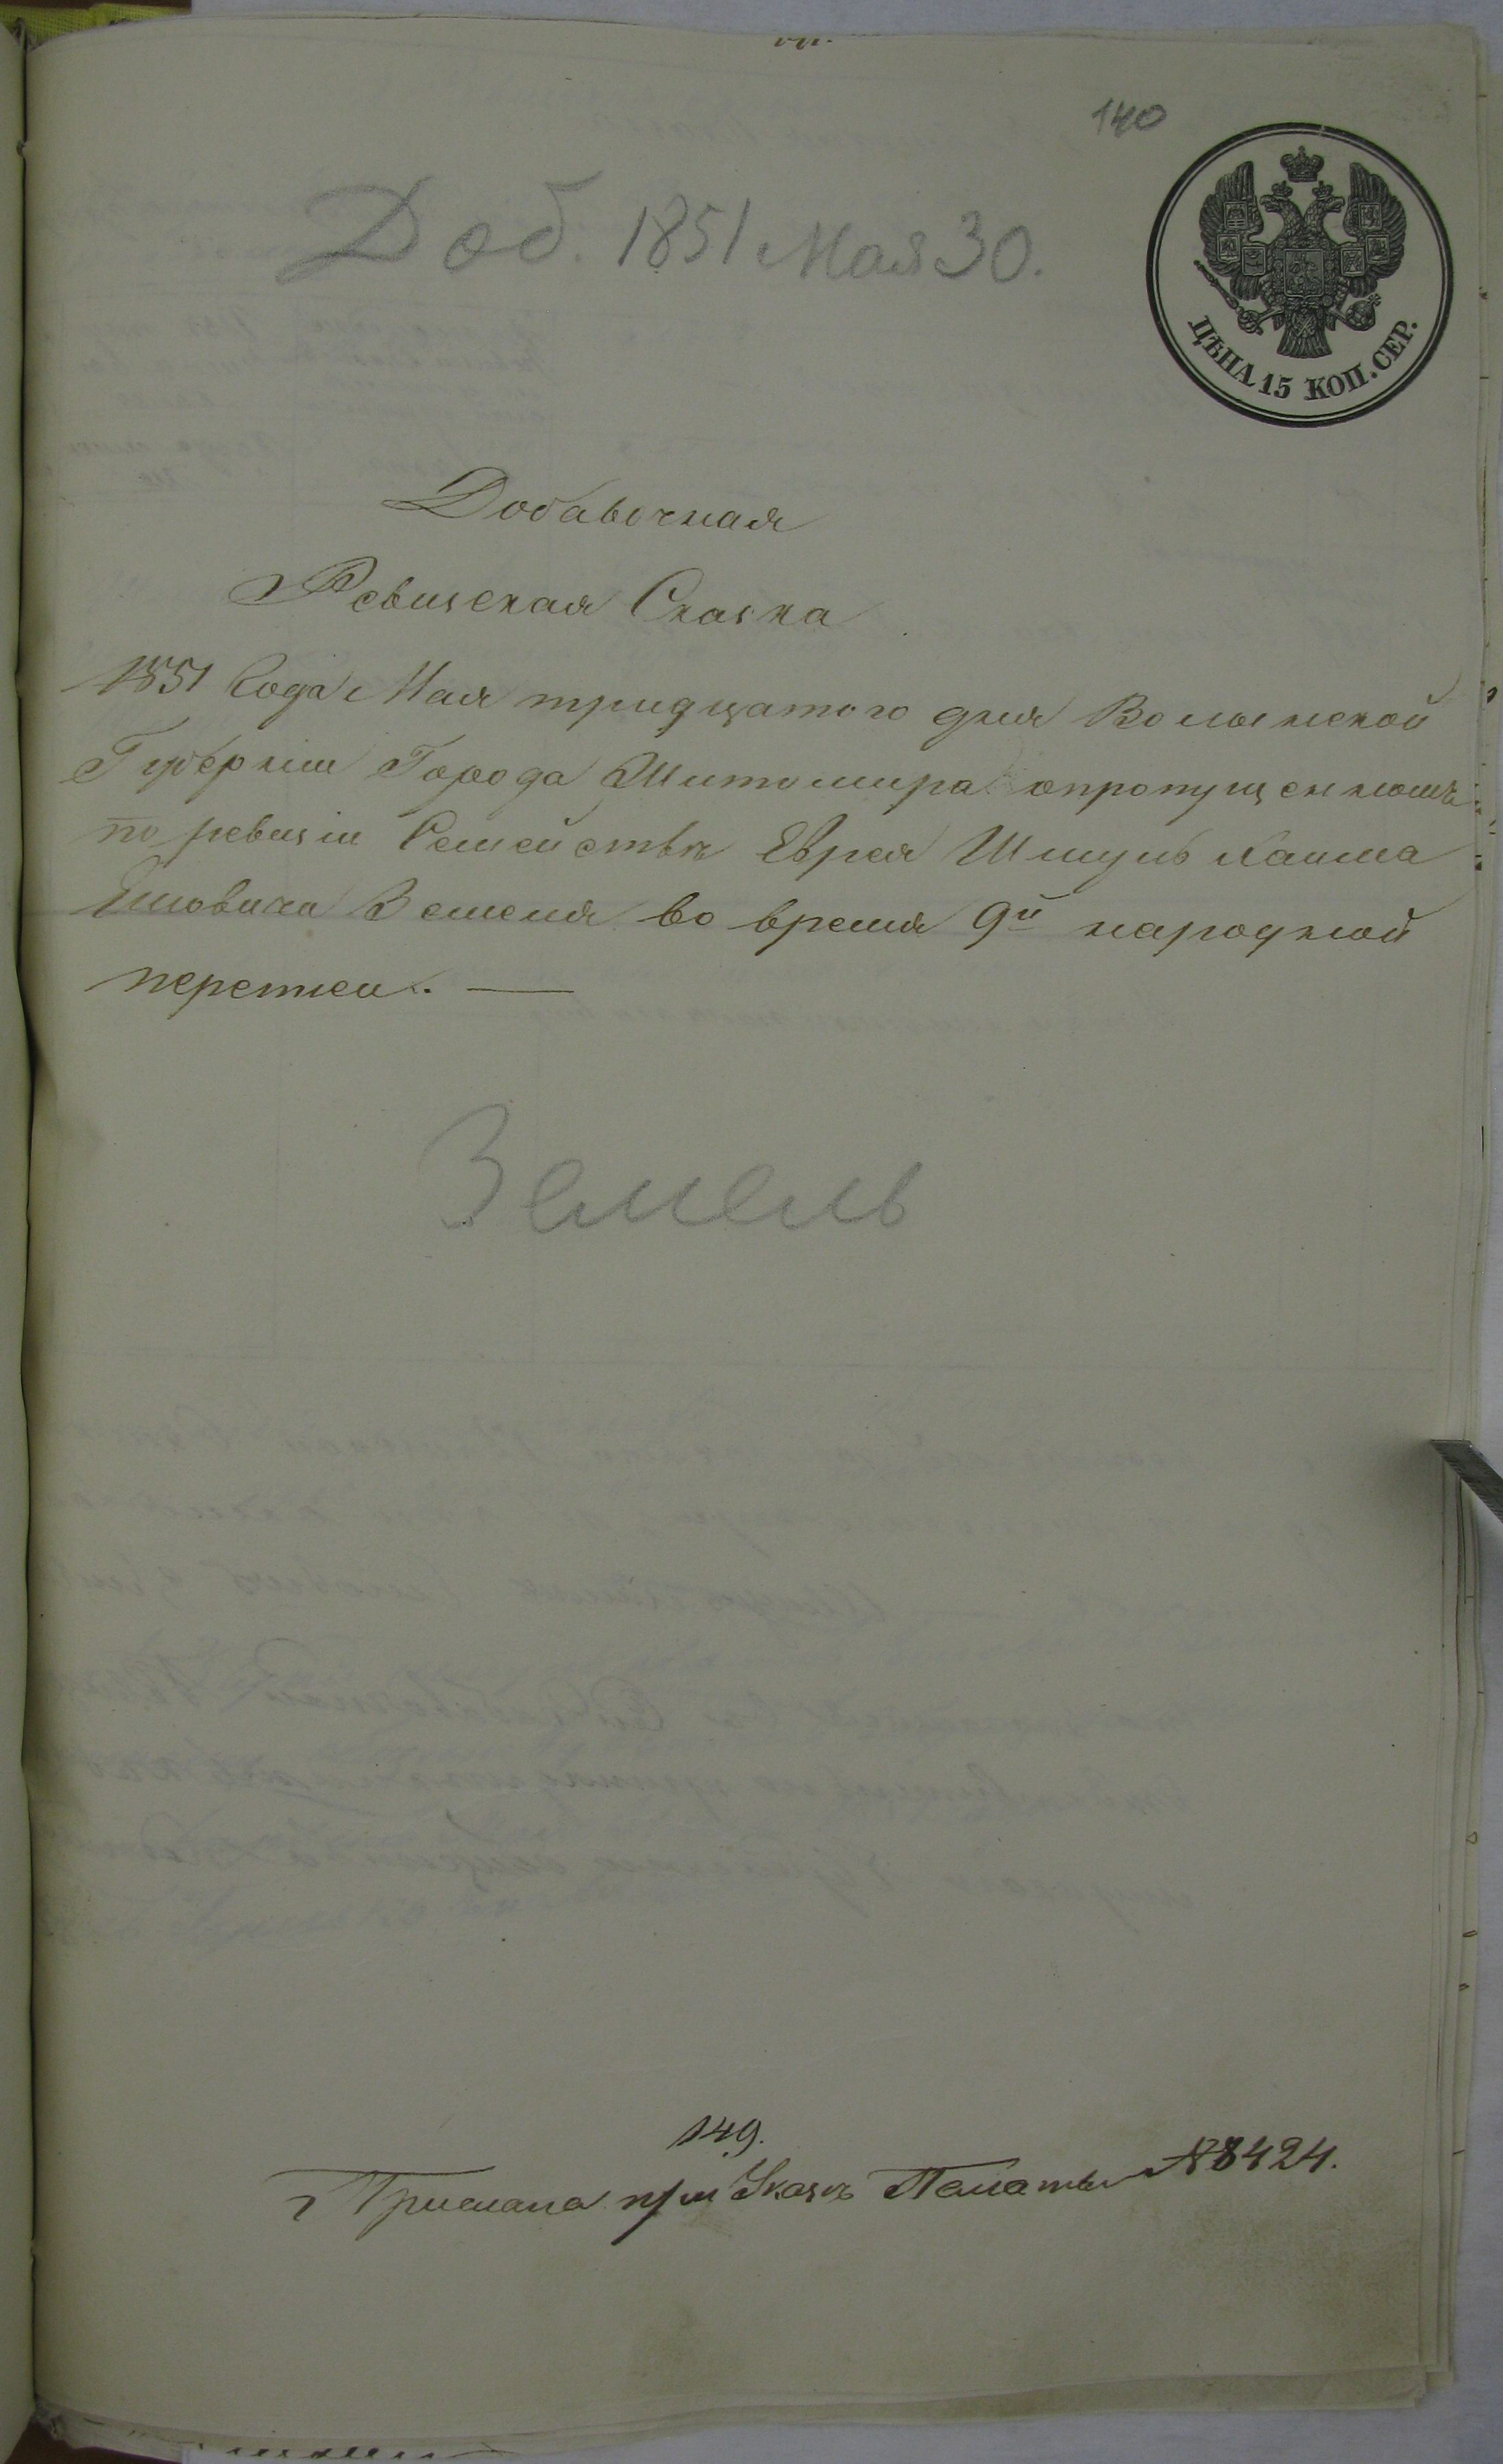 140
Доб. 1851 Мая 30.
ЦѢНА 15 КОП. СЕР.
Добавочная
Ревизская Сказка
1851 Года Мая тридцатого дня Волынской
Губерніи Города Житомира опропущенномъ
по ревизіи Семействѣ Еврея Шмуль Хаима
Земеля во время 9й народной
переписи.
Земель
149.
Прислана при Указѣ Палаты №8424.